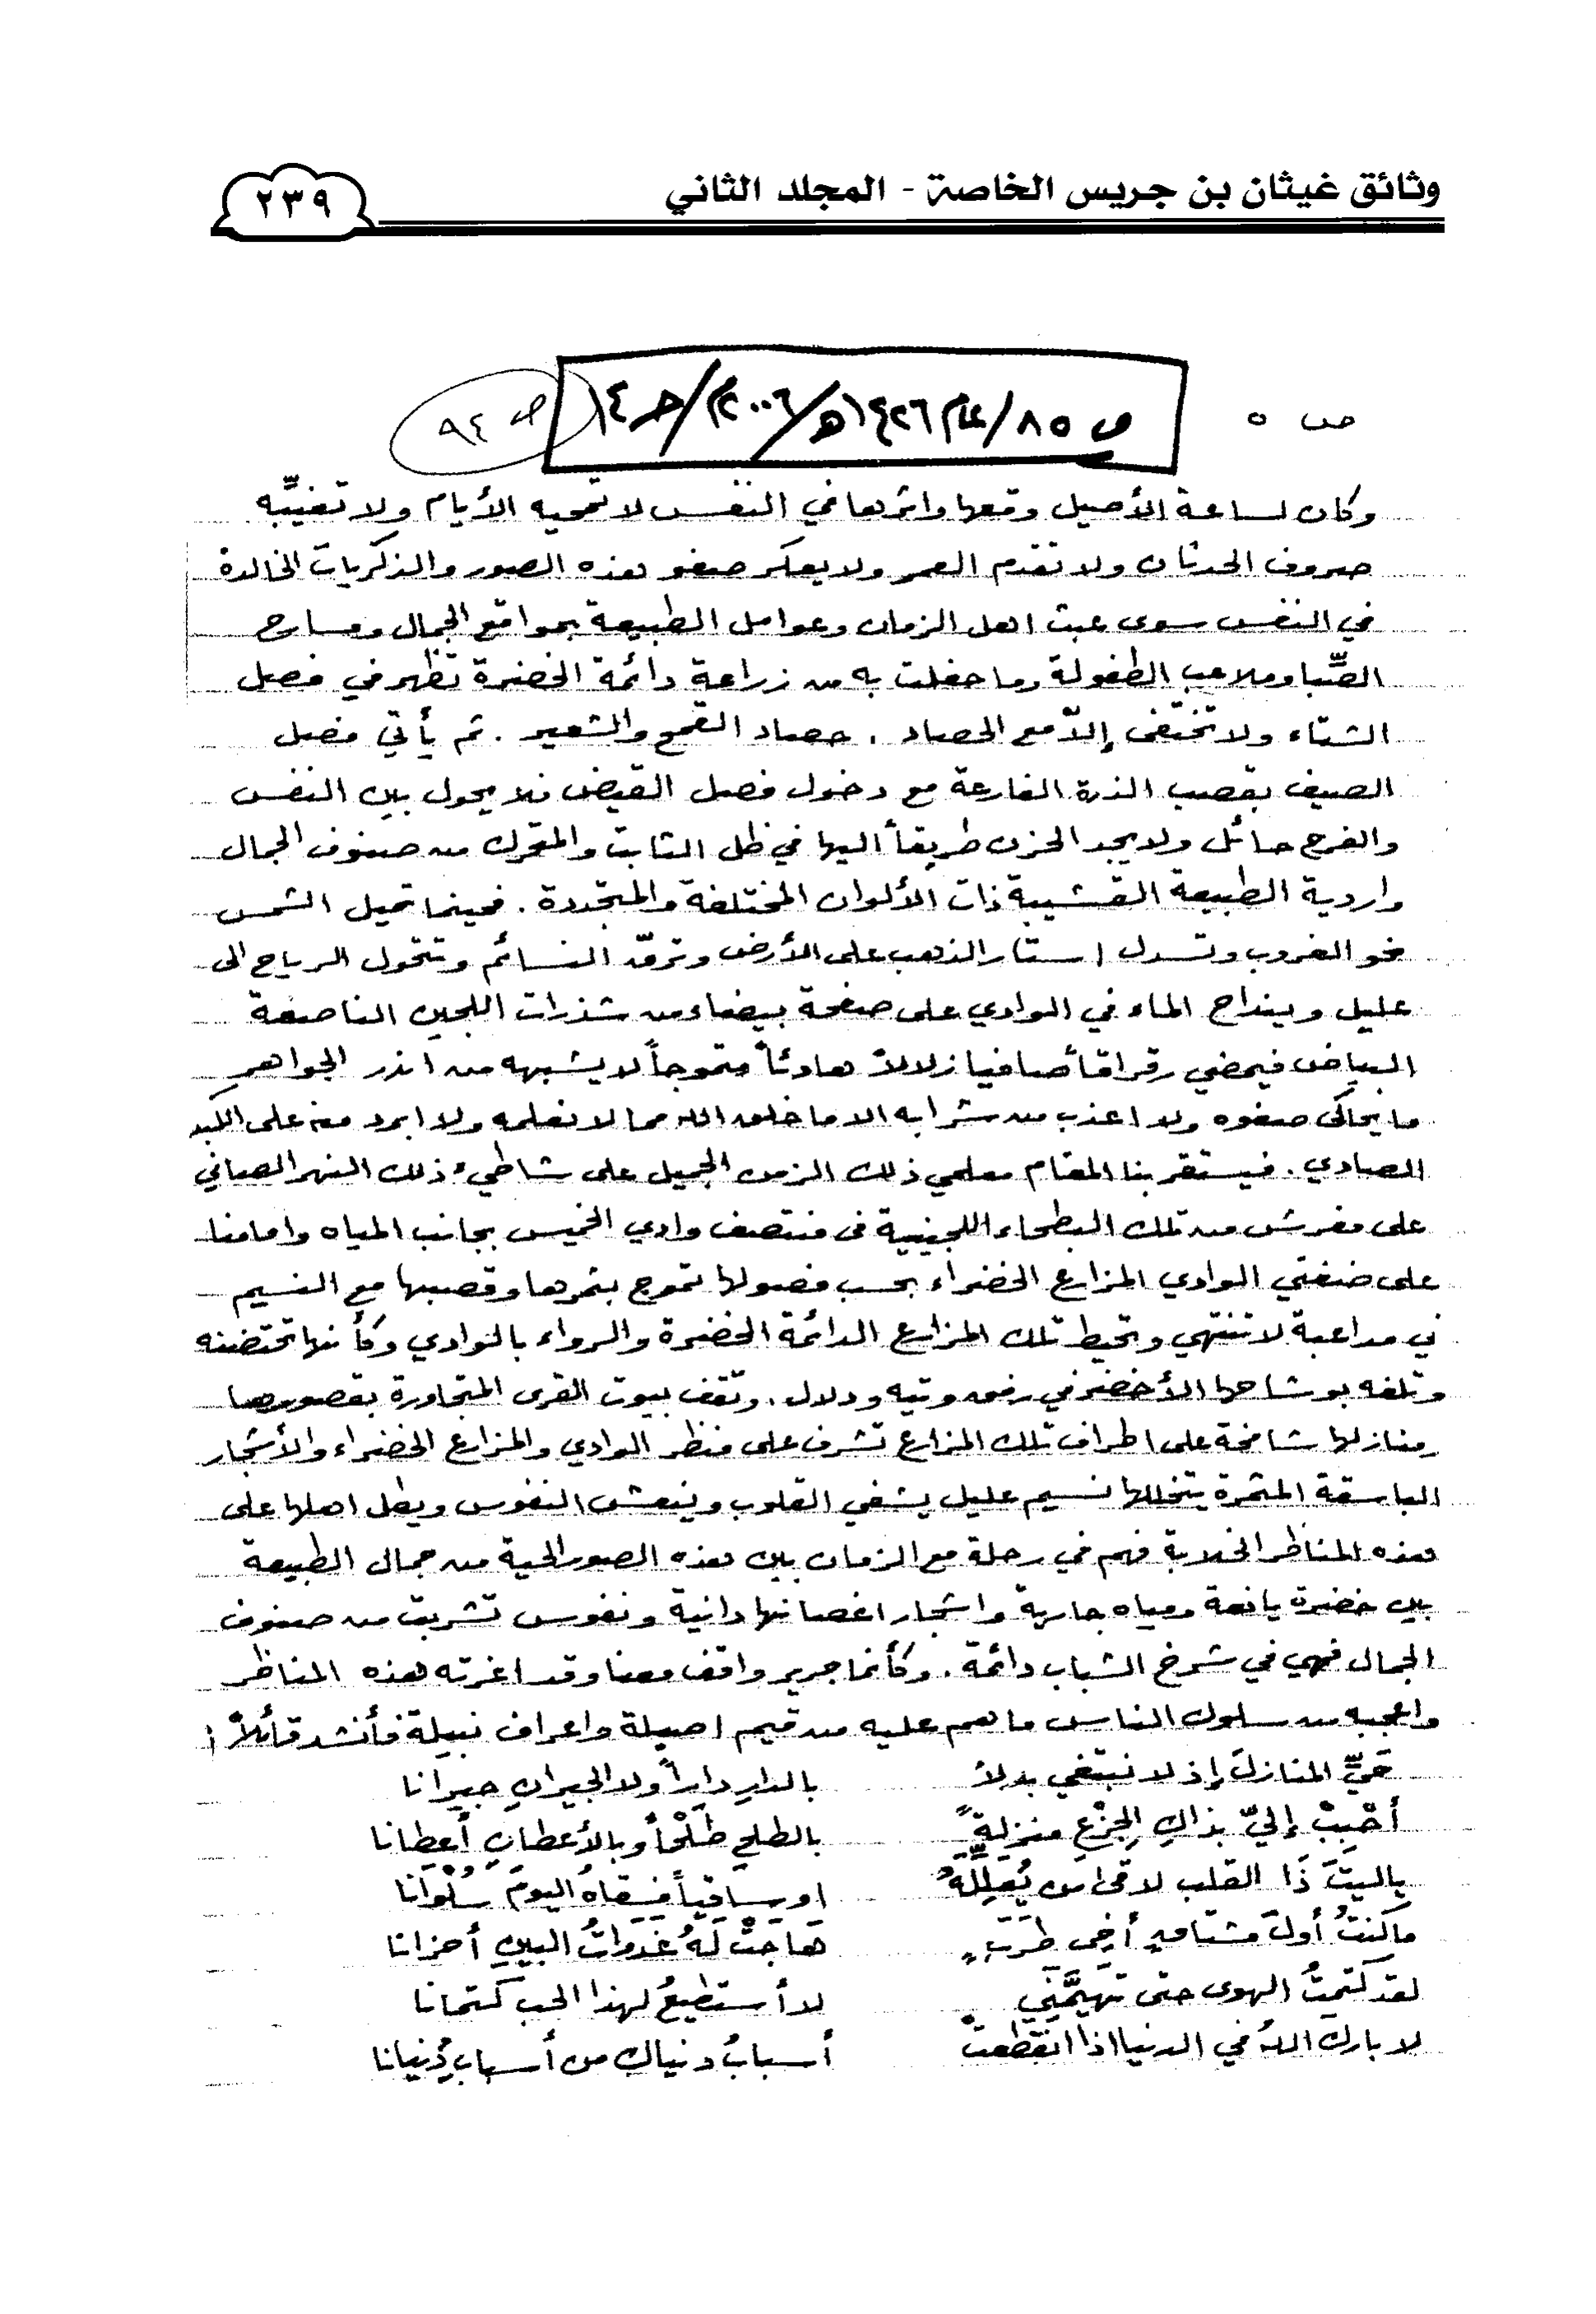 وثائق غيثان بن جريس الخاصة - المجلد الثاني
٢٣٩
ص ٥
ص ٨٥/عام ١٤٢٦هـ/٢٠٠٦م/جـ١٤
ص ٩٤
وكان لساعة الأصيل وقعها واثرها في النفس لا تمحيه الأيام ولا تغيِّبه
صروف الحدثان ولا تقدم العمر ولا يعكر صفو هذه الصور والذكريات الخالدة
في النفس سوى عبث اهل الزمان وعوامل الطبيعة بمواقع الجمال ومسارح
الصِّبا وملاعب الطفولة وما حفلت به من زراعة دائمة الخضرة تظهر في فصل
الشتاء ولا تختفى إلاّ مع الحصاد . حصاد القمح والشعير . ثم يأتي فصل
الصيف بقصب الذرة الفارعة مع دخول فصل القيض فلا يحول بين النفس
والفرح حائل ولا يجد الحزن طريقاً اليها في ظل الثابت والمتحرك من صنوف الجمال
واردية الطبيعة القشيبة ذات الألوان المختلفة والمتجددة . فحينما تميل الشمس
نحو الغروب وتسدل استار الذهب على الأرض وترقّ النسائم وتتحول الرياح الى
عليل وينداح الماء في الوادي على صفحة بيضاء من شذرات اللجين الناصعة
البياض فيمضي رقراقاً صافيا زلالاً هادئاً متموجاً لا يشبهه من اندر الجواهر
ما يحاكى صفوه ولا اعذب من شرابه الا ما خلق الله مما لا نعلمه ولا ابرد منه على الكبد
الصادي . فيستقر بنا المقام معلمي ذلك الزمن الجميل على شاطيء ذلك النهر الصافي
على مفرش من تلك البطحاء اللجينية فى منتصف وادي الخميس بجانب المياه وامامنا
على ضفتي الوادي المزارع الخضراء بحسب فصولها تموج بثمرها وقصبها مع النسيم
في مداعبة لا تنتهي وتحيط تلك المزارع الدائمة الخضرة والرواء بالوادي وكأنها تحتضنه
وتلفه بوشاحها الأخضر في رفق وتيه ودلال . وتقف بيوت القرى المتجاورة بقصورها
ومنازلها شامخة على اطراف تلك المزارع تشرف على منظر الوادي والمزارع الخضراء والأشجار
الباسقة المثمرة يتخللها نسيم عليل يشفي القلوب وينعش النفوس ويطل اهلها على
هذه المناظر الخلابة فهم في رحلة مع الزمان بين هذه الصور الحية من جمال الطبيعة
بين خضرة يانعة ومياه جارية واشجار اغصانها دانية ونفوس تشربت من صنوف
الجمال فهي في شرخ الشباب دائمة . وكأنما جرير واقف معنا وقد اغرته هذه المناظر
واعجبه من سلوك الناس ما هم عليه من قيم اصيلة واعراف نبيلة فأنشد قائلاً :
حَيِّ المنازلَ إذ لا نبتغي بدلاً بالدارِ داراً ولا الجيرانِ جيرانا
أحْبِبْ إليّ بذاك الجِزْعِ منزلةً بالطلحِ طَلْحاً وبالأعطانِ أعطانا
ياليتَ ذَا القلب لاقى من يُعلِّلَهُ او ساقياً فسقاهُ اليومَ سُلْوانا
ما كنتُ أولَ مشتاقٍ أخي طَرَبٍ هَاجَتْ لَهُ غدواتُ البينِ أحزانا
لقد كتمتُ الهوى حتى تهيَّمَني لا أستطيعُ لهذا الحب كتمانا
لا بارك اللهُ في الدنيا اذا انقطعتْ أسبابُ دنياكِ من أسبابِ دُنيانا